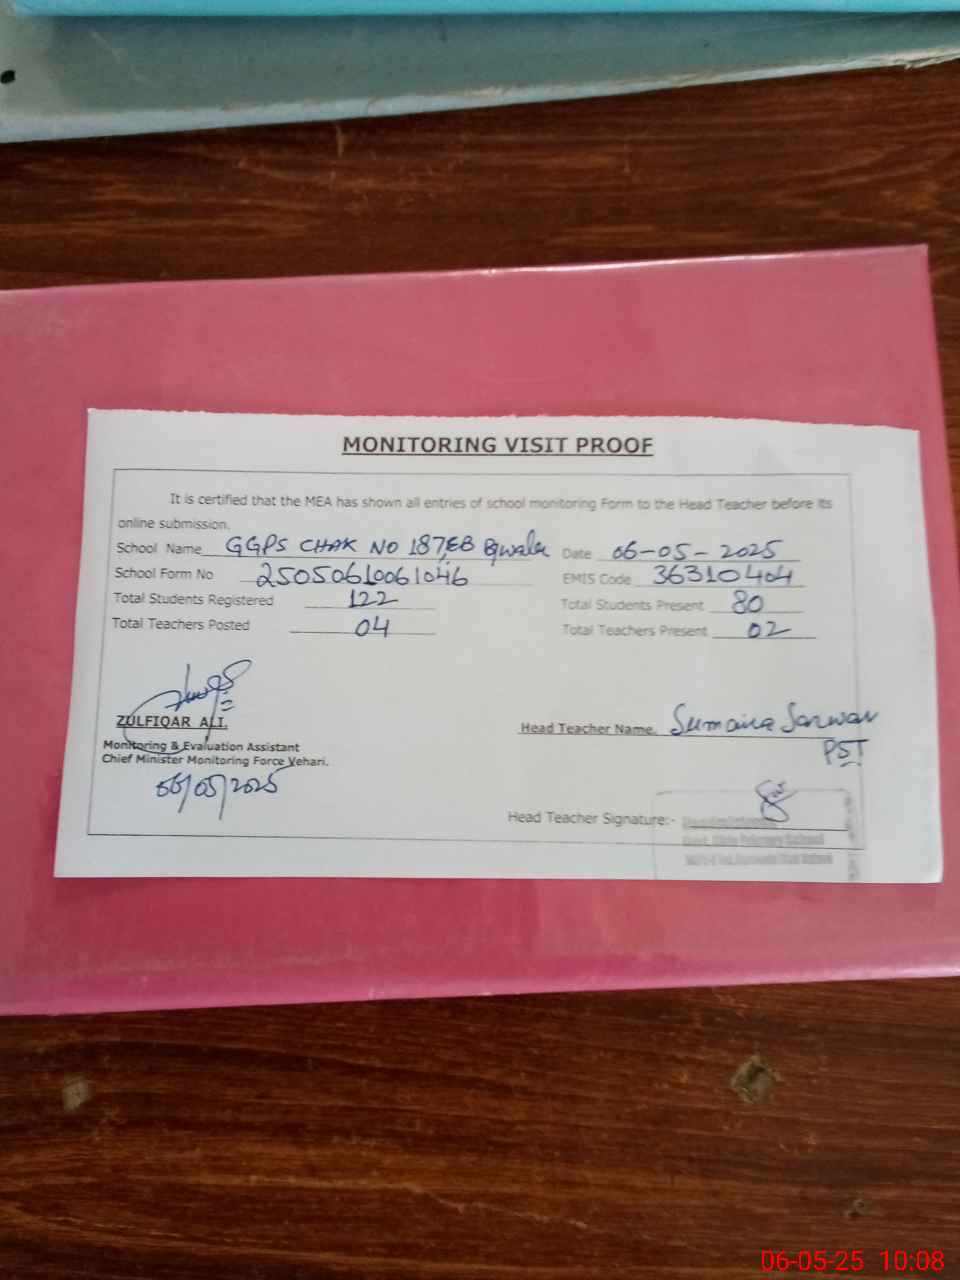 MONITORING VISIT PROOF
It is certified that the MEA has shown all entries of school monitoring Form to the Head Teacher before its
online submission.
School Name GGPS CHAK NO 187,EB Date 06-05-2025
School Form No 25050610061046 EMIS Code 36310404
Total Students Registered 122 Total Students Present 80
Total Teachers Posted 04 Total Teachers Present 02
ZULFIQAR ALI.
Monitoring & Evaluation Assistant
Chief Minister Monitoring Force Vehari.
06/05/2025
Head Teacher Name. Sumaira Sarwar
PST
Head Teacher Signature:-
Govt. Girls Primary School
06-05-25 10:08